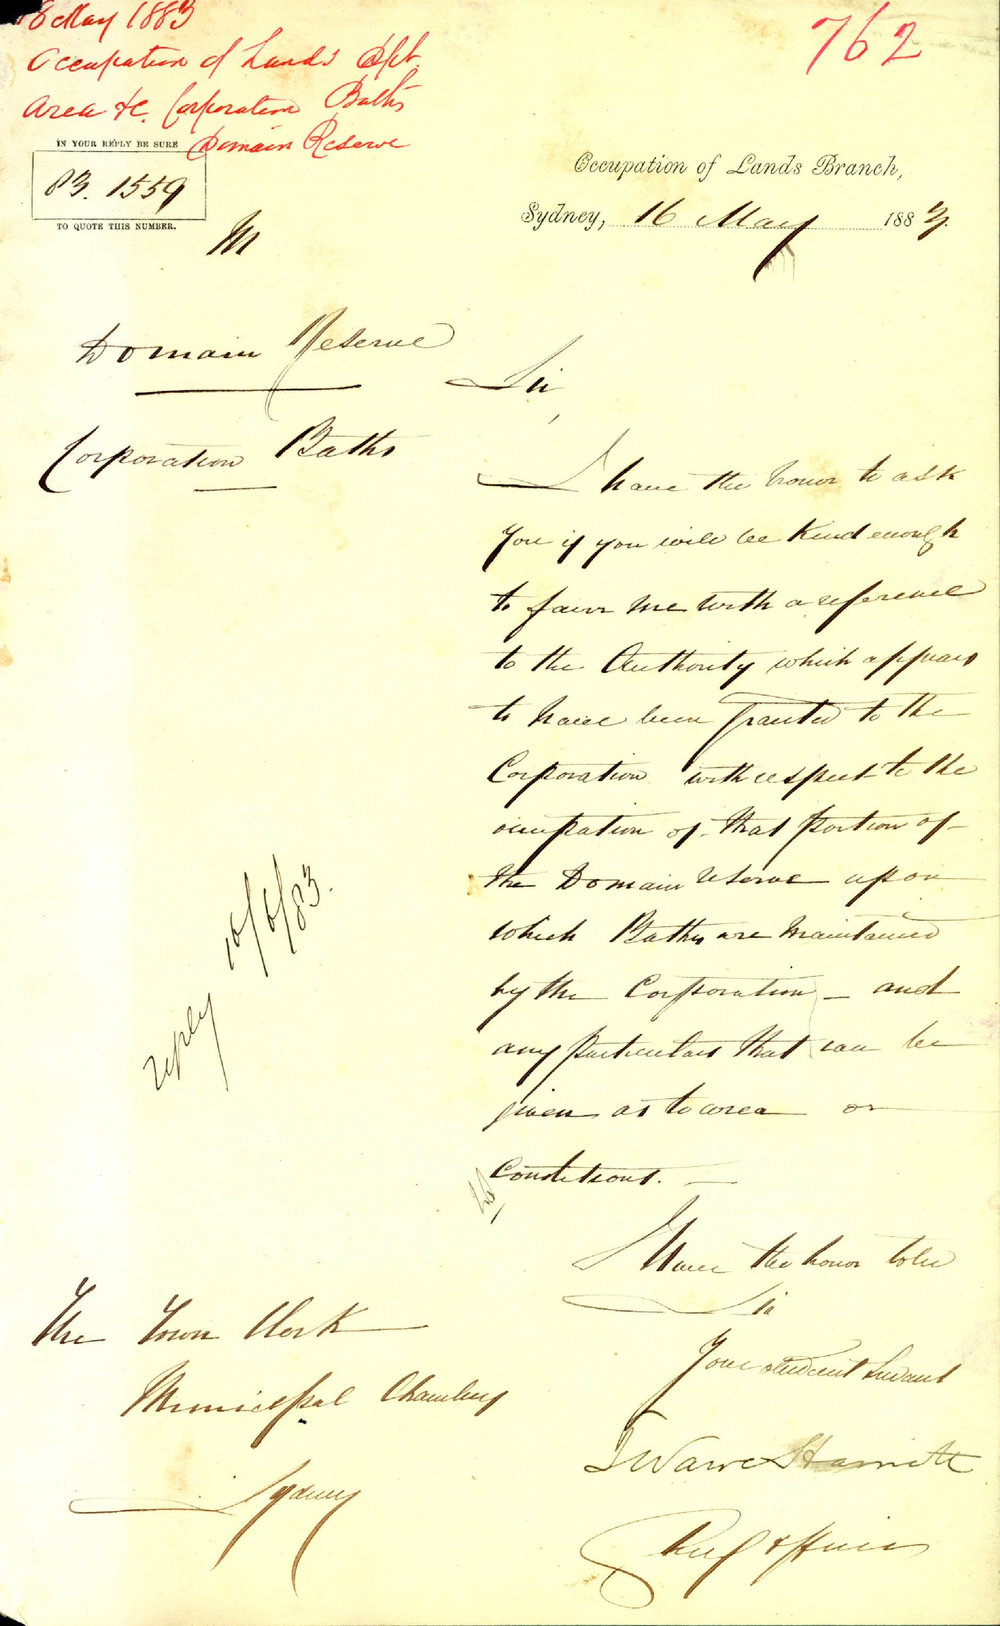 18 May 1883
Occupation of Lands Dpt.
Area &c. Corporation Baths
Domain Reserve
762
IN YOUR REPLY BE SURE
83. 1559
TO QUOTE THIS NUMBER.
M
Occupation of Lands Branch,
Sydney, 16 May 1883.
Domain Reserve
Corporation Baths
Sir,
I have the honor to ask
you if you will be kind enough
to favor me with a reference
to the Authority which appears
to have been granted to the
Corporation with respect to the
occupation of that portion of
the Domain reserve upon
which Baths are maintained
by the Corporation – and
any particulars that can be
given as to area or
Conditions. –
reply 16/6/83.
I have the honor to be
Sir
Your obedient Servant
Chief Officer
The Town Clerk
Municipal Chambers
Sydney